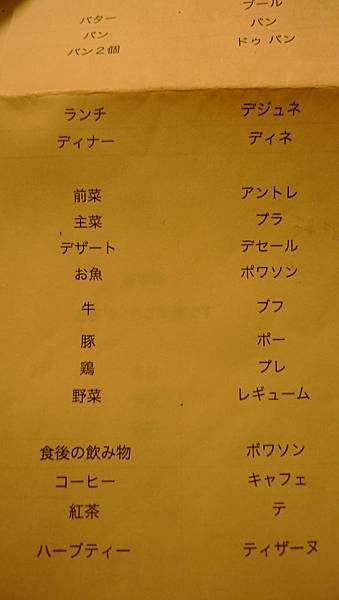 バター ブール
パン パン
パン２個 ドゥ パン
ランチ デジュネ
ディナー ディネ
前菜 アントレ
主菜 プラ
デザート デセール
お魚 ポワソン
牛 ブフ
豚 ポー
鶏 プレ
野菜 レギューム
食後の飲み物 ボワソン
コーヒー キャフェ
紅茶 テ
ハーブティー ティザーヌ